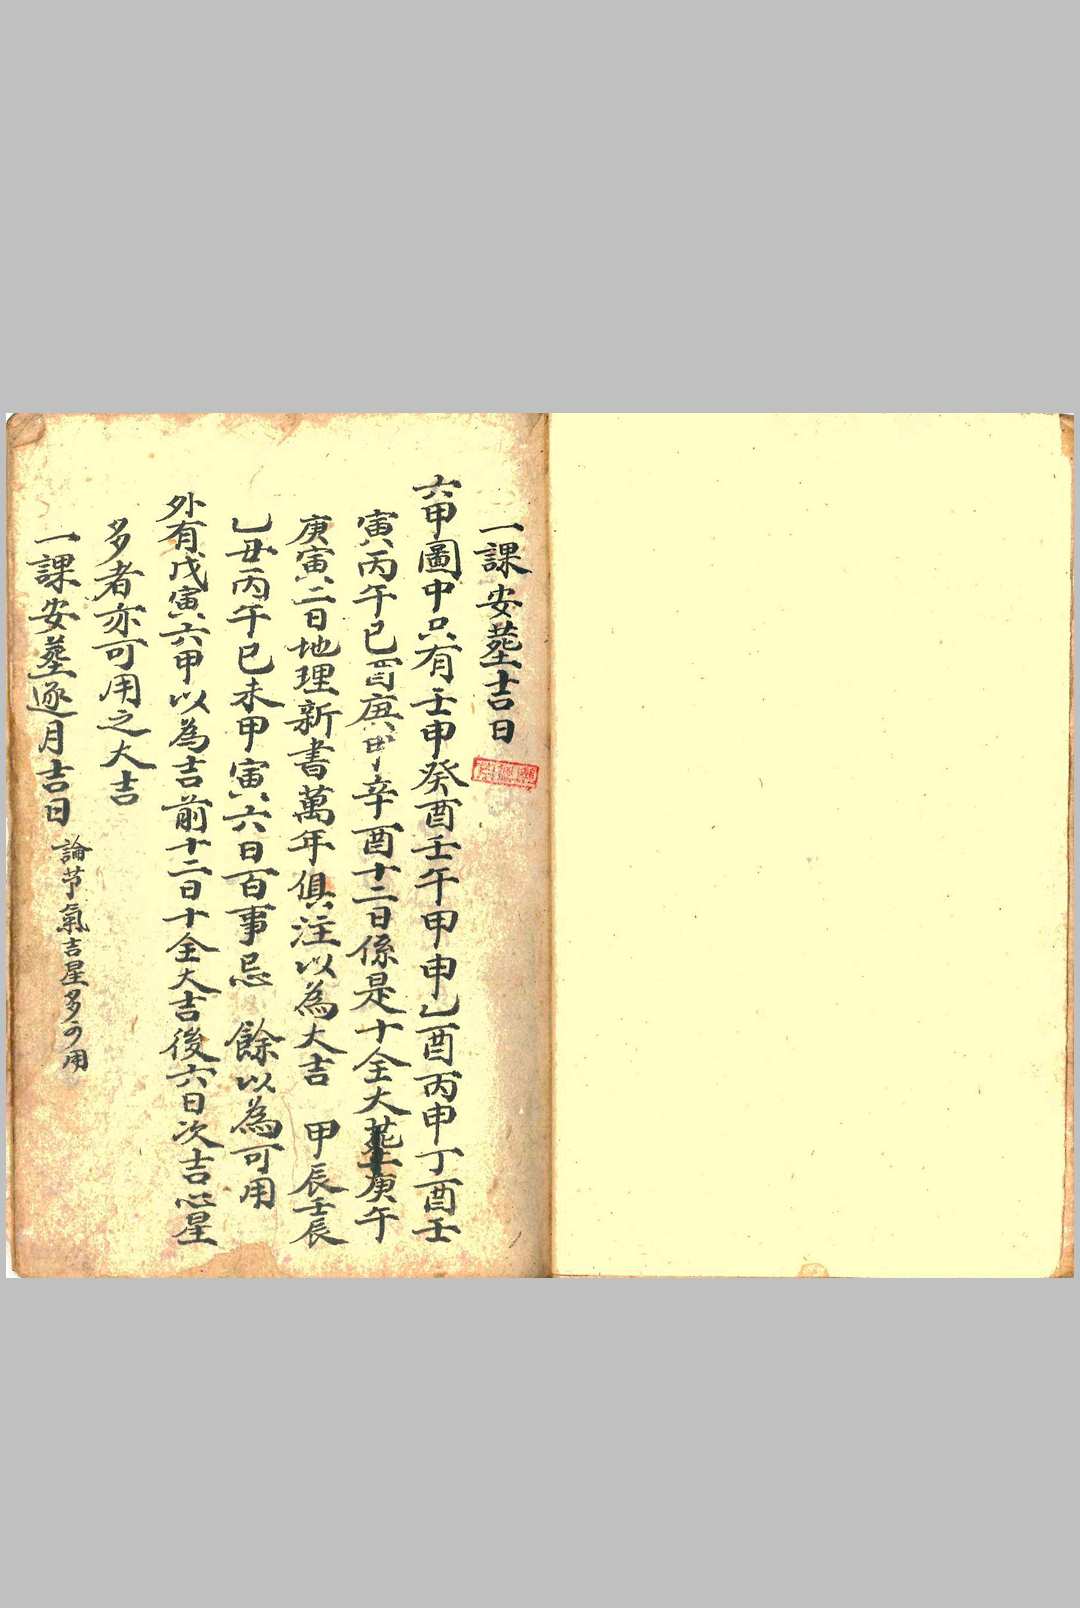 一課安塟吉日
六甲圖中只有壬申癸酉壬午甲申乙酉丙申丁酉壬
寅丙午己酉庚申辛酉十二日係是十全大塟庚午
庚寅二日地理新書萬年俱注以為大吉 甲辰壬辰
乙丑丙午己未甲寅六日百事忌 餘以為可用
外有戊寅六甲以為吉前十二日十全大吉後六日次吉必星
多者亦可用之大吉
一課安塟逐月吉日 論节氣吉星多可用